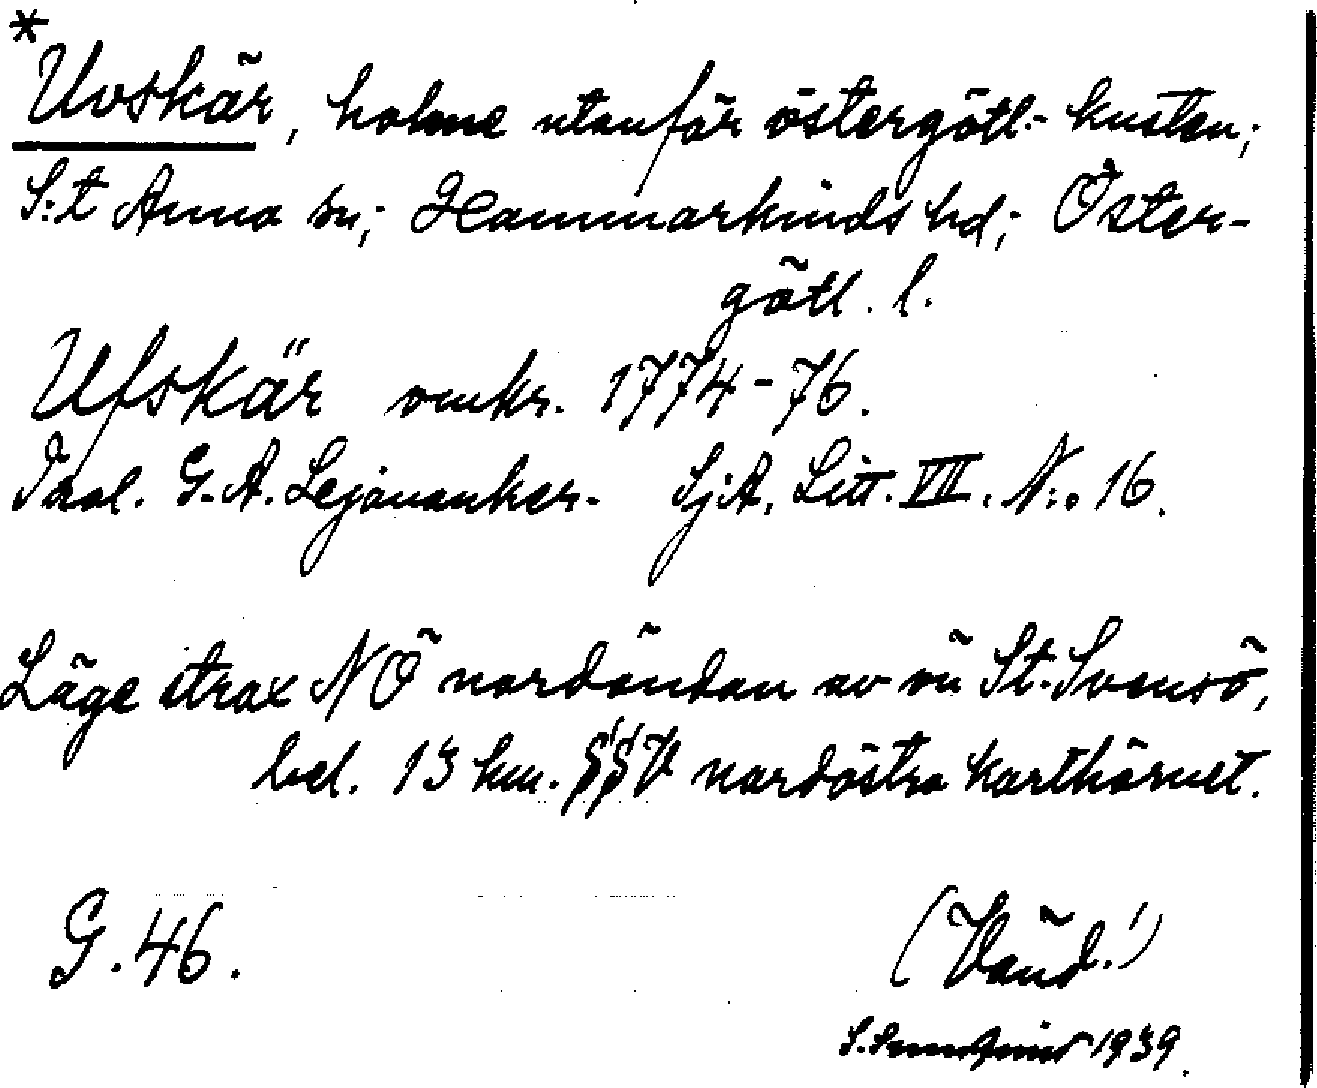 *
Uvskär, holme utanför östergötl.- kusten;
S:t Anna sn; Hammarkinds hd; Öster-
götl. l.
Ufskär omkr. 1774-76.
G. A. Lejonanker. SjA. Litt. VII. N:o 16.
Läge strax NÖ nordändan av ön St. Svensö,
bel. 13 km. SSV nordöstra karthörnet.
G. 46.
(Vänd!)
S. 1939.